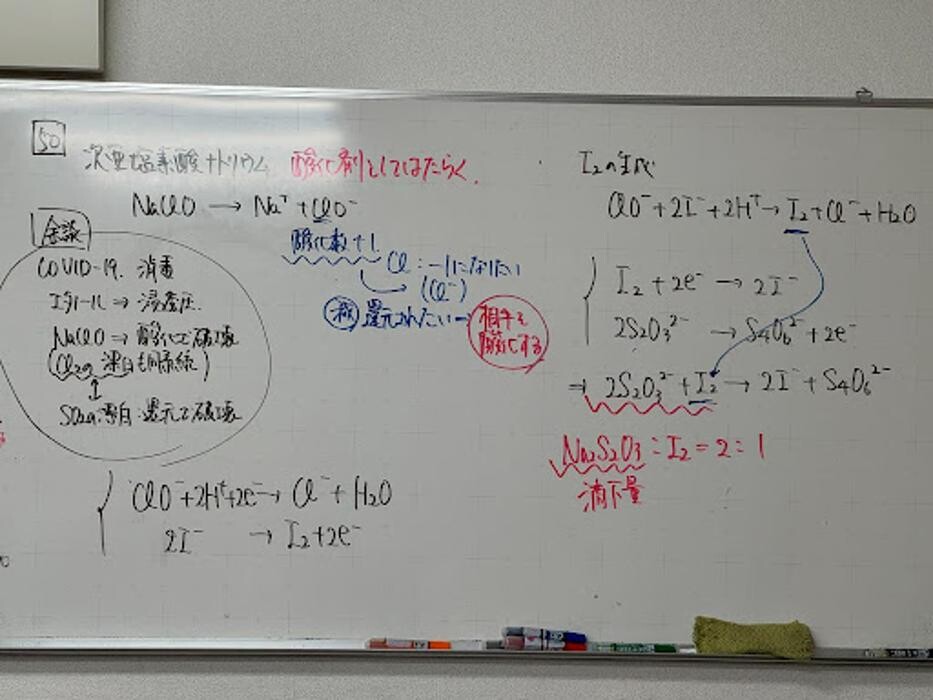 50
次亜塩素酸ナトリウム 酸化剤としてはたらく。
NaClO → Na⁺ + ClO⁻
酸化数+1
Cl : -1になりたい
(Cl⁻)
還元されたい→
相手を
酸化する
余談
COVID-19. 消毒
エタノール ⇒ 浸透圧
NaClO ⇒ 酸化で破壊
(Cl₂の漂白も同系統)
↕
SO₂の漂白:還元で破壊
ClO⁻+2H⁺+2e⁻→ Cl⁻+H₂O
2I⁻ → I₂+2e⁻
・ I₂の生成
ClO⁻+2I⁻+2H⁺→I₂+Cl⁻+H₂O
I₂+2e⁻ → 2I⁻
2S₂O₃²⁻ → S₄O₆²⁻+2e⁻
⇒ 2S₂O₃²⁻+I₂→ 2I⁻+S₄O₆²⁻
Na₂S₂O₃:I₂=2:1
滴下量